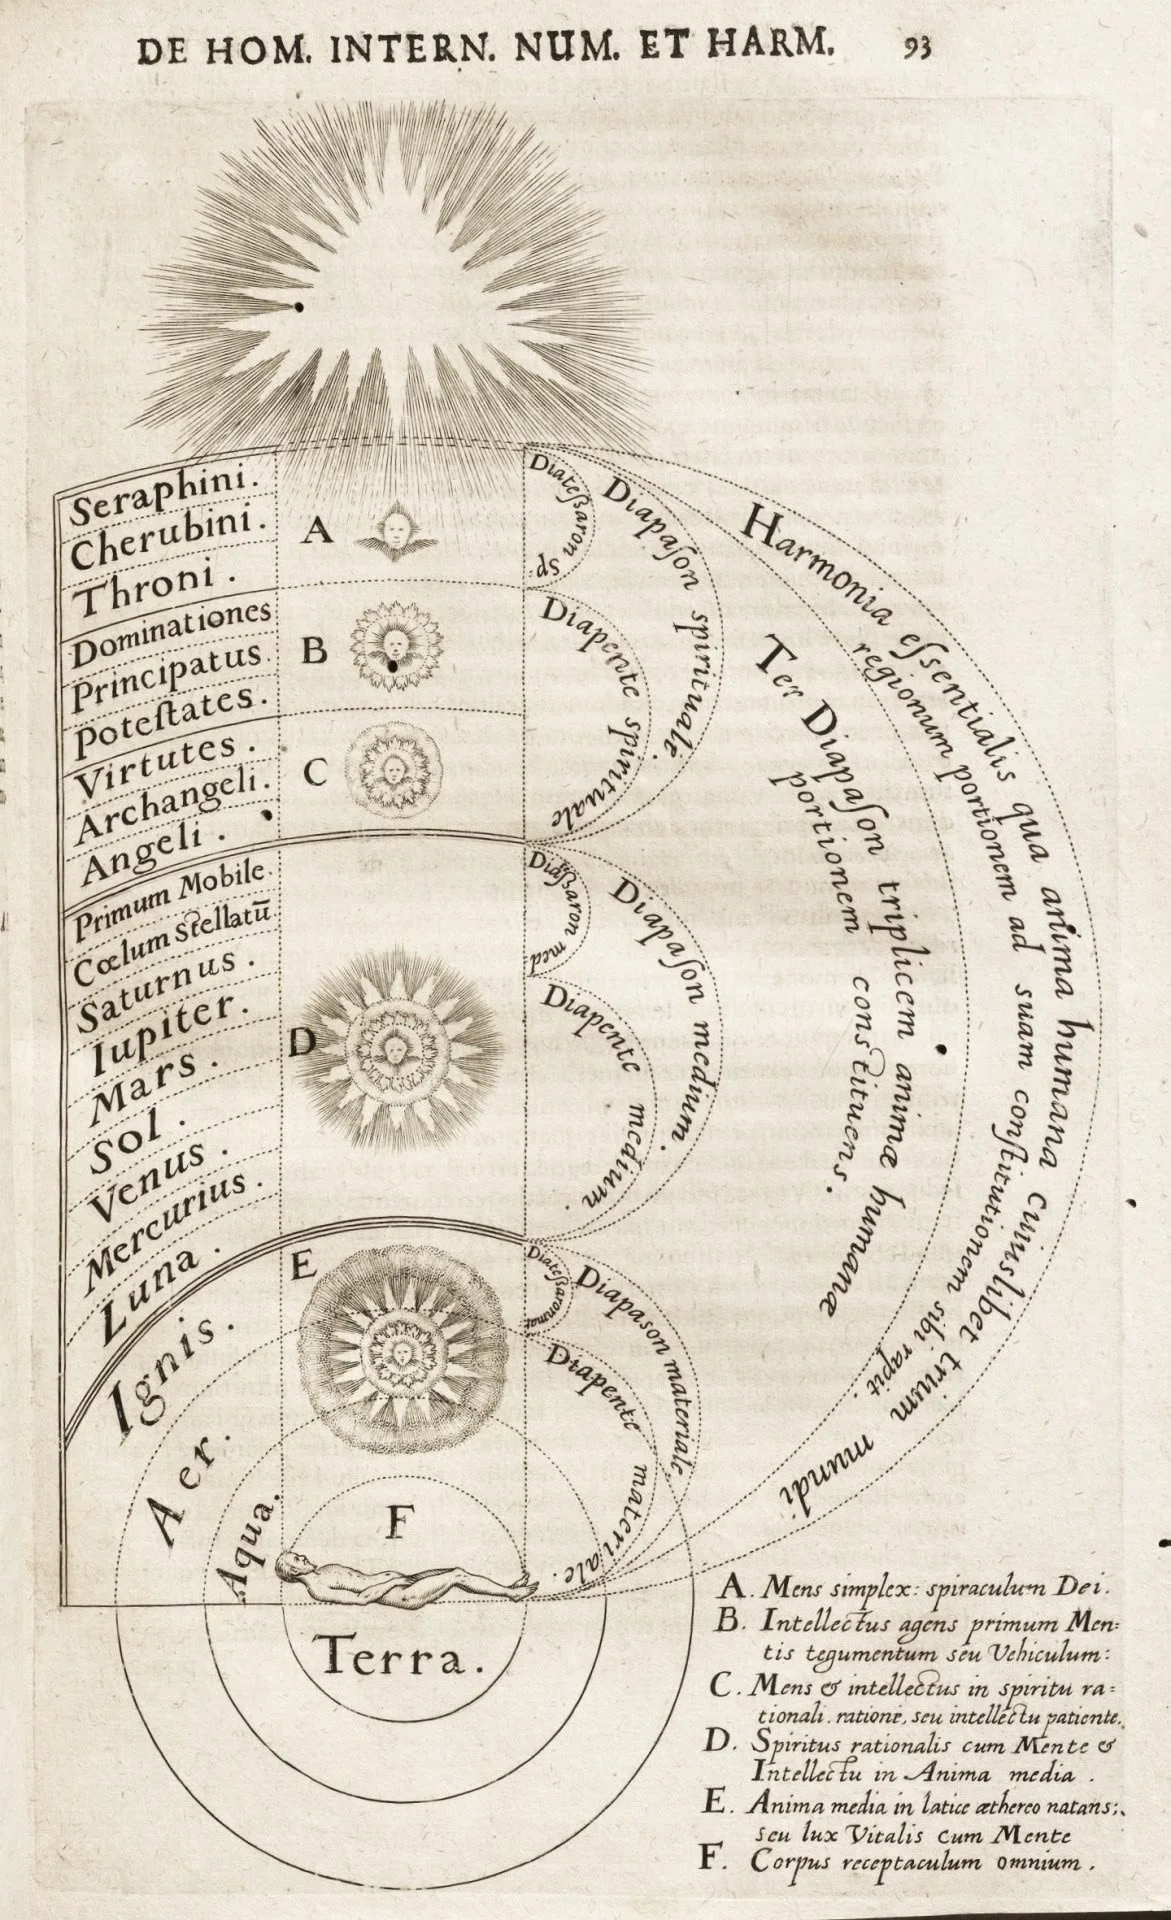 DE HOM. INTERN. NUM. ET HARM. 93
Seraphini.
Cherubini.
Throni.
Dominationes
Principatus.
Poteſtates.
Virtutes.
Archangeli.
Angeli.
Primum Mobile.
Cœlum Stellatū
Saturnus.
Iupiter.
Mars.
Sol.
Venus.
Mercurius.
Luna.
Ignis.
Aer.
Aqua.
Terra.
A
B
C
D
E
F
Diateßaron sp:
Diapaſon spirituale.
Diapente spirituale
Diateßaron med
Diapaſon medium.
Diapente medium.
Diateßaron mat
Diapason materiale
Diapente materiale.
Harmonia eſsentialis qua anima humana cuiuslibet trium mundi
regionum portionem ad suam conſtitutionem sibi rapit
Ter Diapaſon triplicem animæ humanæ
portionem constituens.
A. Mens simplex: spiraculum Dei.
B. Intellectus agens primum Men=
tis tegumentum seu Vehiculum:
C. Mens & intellectus in spiritu ra=
tionali. ratione, seu intellectu patiente.
D. Spiritus rationalis cum Mente &
Intellectu in Anima media.
E. Anima media in latice æthereo natans;
seu lux Vitalis cum Mente
F. Corpus receptaculum omnium.